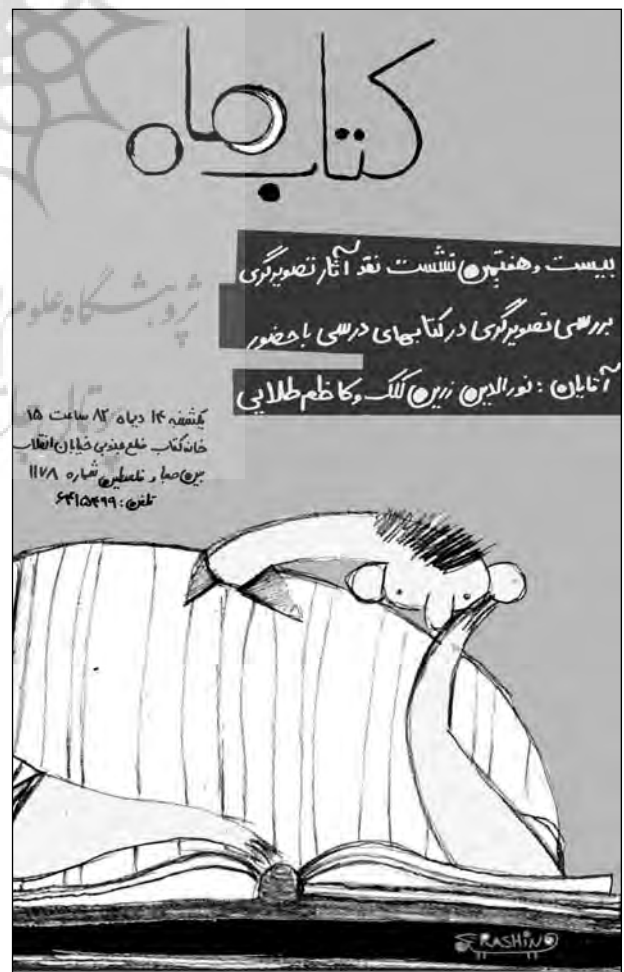 کتاب ماه
بیست و هفتمین نشست نقد آثار تصویرگری
بررسی تصویرگری در کتابهای درسی با حضور
آقایان : نورالدین زرین کلک و کاظم طلایی
یکشنبه ۱۴ دیماه ۸۲ ساعت ۱۵
خانه کتاب ضلع جنوبی خیابان انقلاب
بین صبا و فلسطین شماره ۱۱۷۸
تلفن : ۶۴۱۵۴۹۹
پژوهشگاه علوم
RASHIN